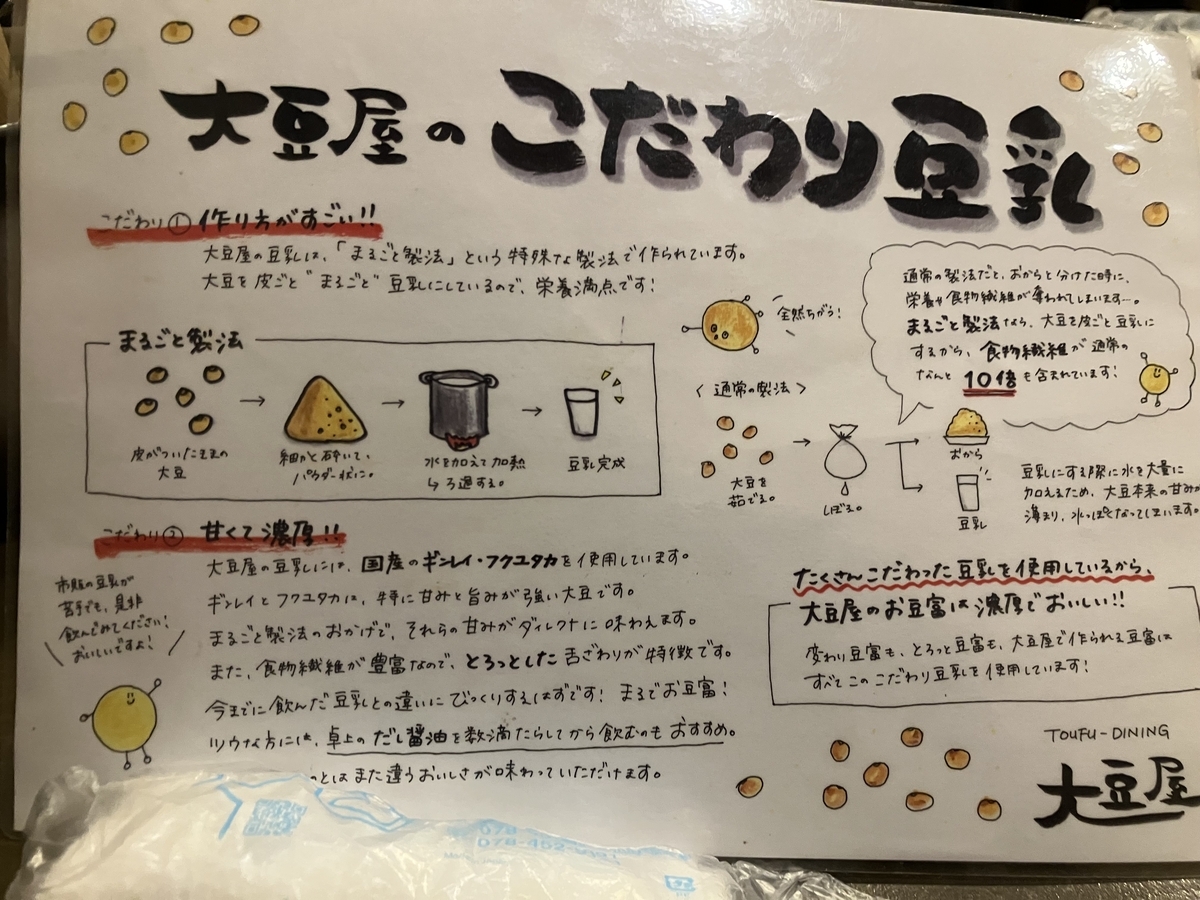 大豆屋のこだわり豆乳
こだわり① 作り方がすごい!!
大豆屋の豆乳は、「まるごと製法」という特殊な製法で作られています。
大豆を皮ごと"まるごと"豆乳にしているので、栄養満点です!
まるごと製法
皮がついたままの
大豆
細かく砕いて、
パウダー状に。
水を加えて加熱
↳ろ過する。
豆乳完成
全然ちがう!
通常の製法だと、おからと分けた時に、
栄養や食物繊維が奪われてしまいます…。
まるごと製法なら、大豆を皮ごと豆乳に
するから、食物繊維が通常の
なんと10倍も含まれています!
〈通常の製法〉
大豆を
茹でる。
しぼる。
おから
豆乳
豆乳にする際に水を大量に
加えるため、大豆本来の甘みが
薄まり、水っぽくなってしまいます。
こだわり② 甘くて濃厚!!
大豆屋の豆乳には、国産のギンレイ・フクユタカを使用しています。
ギンレイとフクユタカは、特に甘みと旨みが強い大豆です。
まるごと製法のおかげで、それらの甘みがダイレクトに味わえます。
また、食物繊維が豊富なので、とろっとした舌ざわりが特徴です。
今までに飲んだ豆乳との違いにびっくりするはずです! まるでお豆富!
ツウな方には、卓上のだし醤油を数滴たらしてから飲むのもおすすめ。
とはまた違うおいしさが味わっていただけます。
市販の豆乳が
苦手でも、是非
飲んでみてください!
おいしいですよ!
たくさんこだわった豆乳を使用しているから、
大豆屋のお豆富は濃厚でおいしい!!
変わり豆富も、とろっと豆富も、大豆屋で作られる豆富は
すべてこのこだわり豆乳を使用しています!
TOUFU-DINING
大豆屋